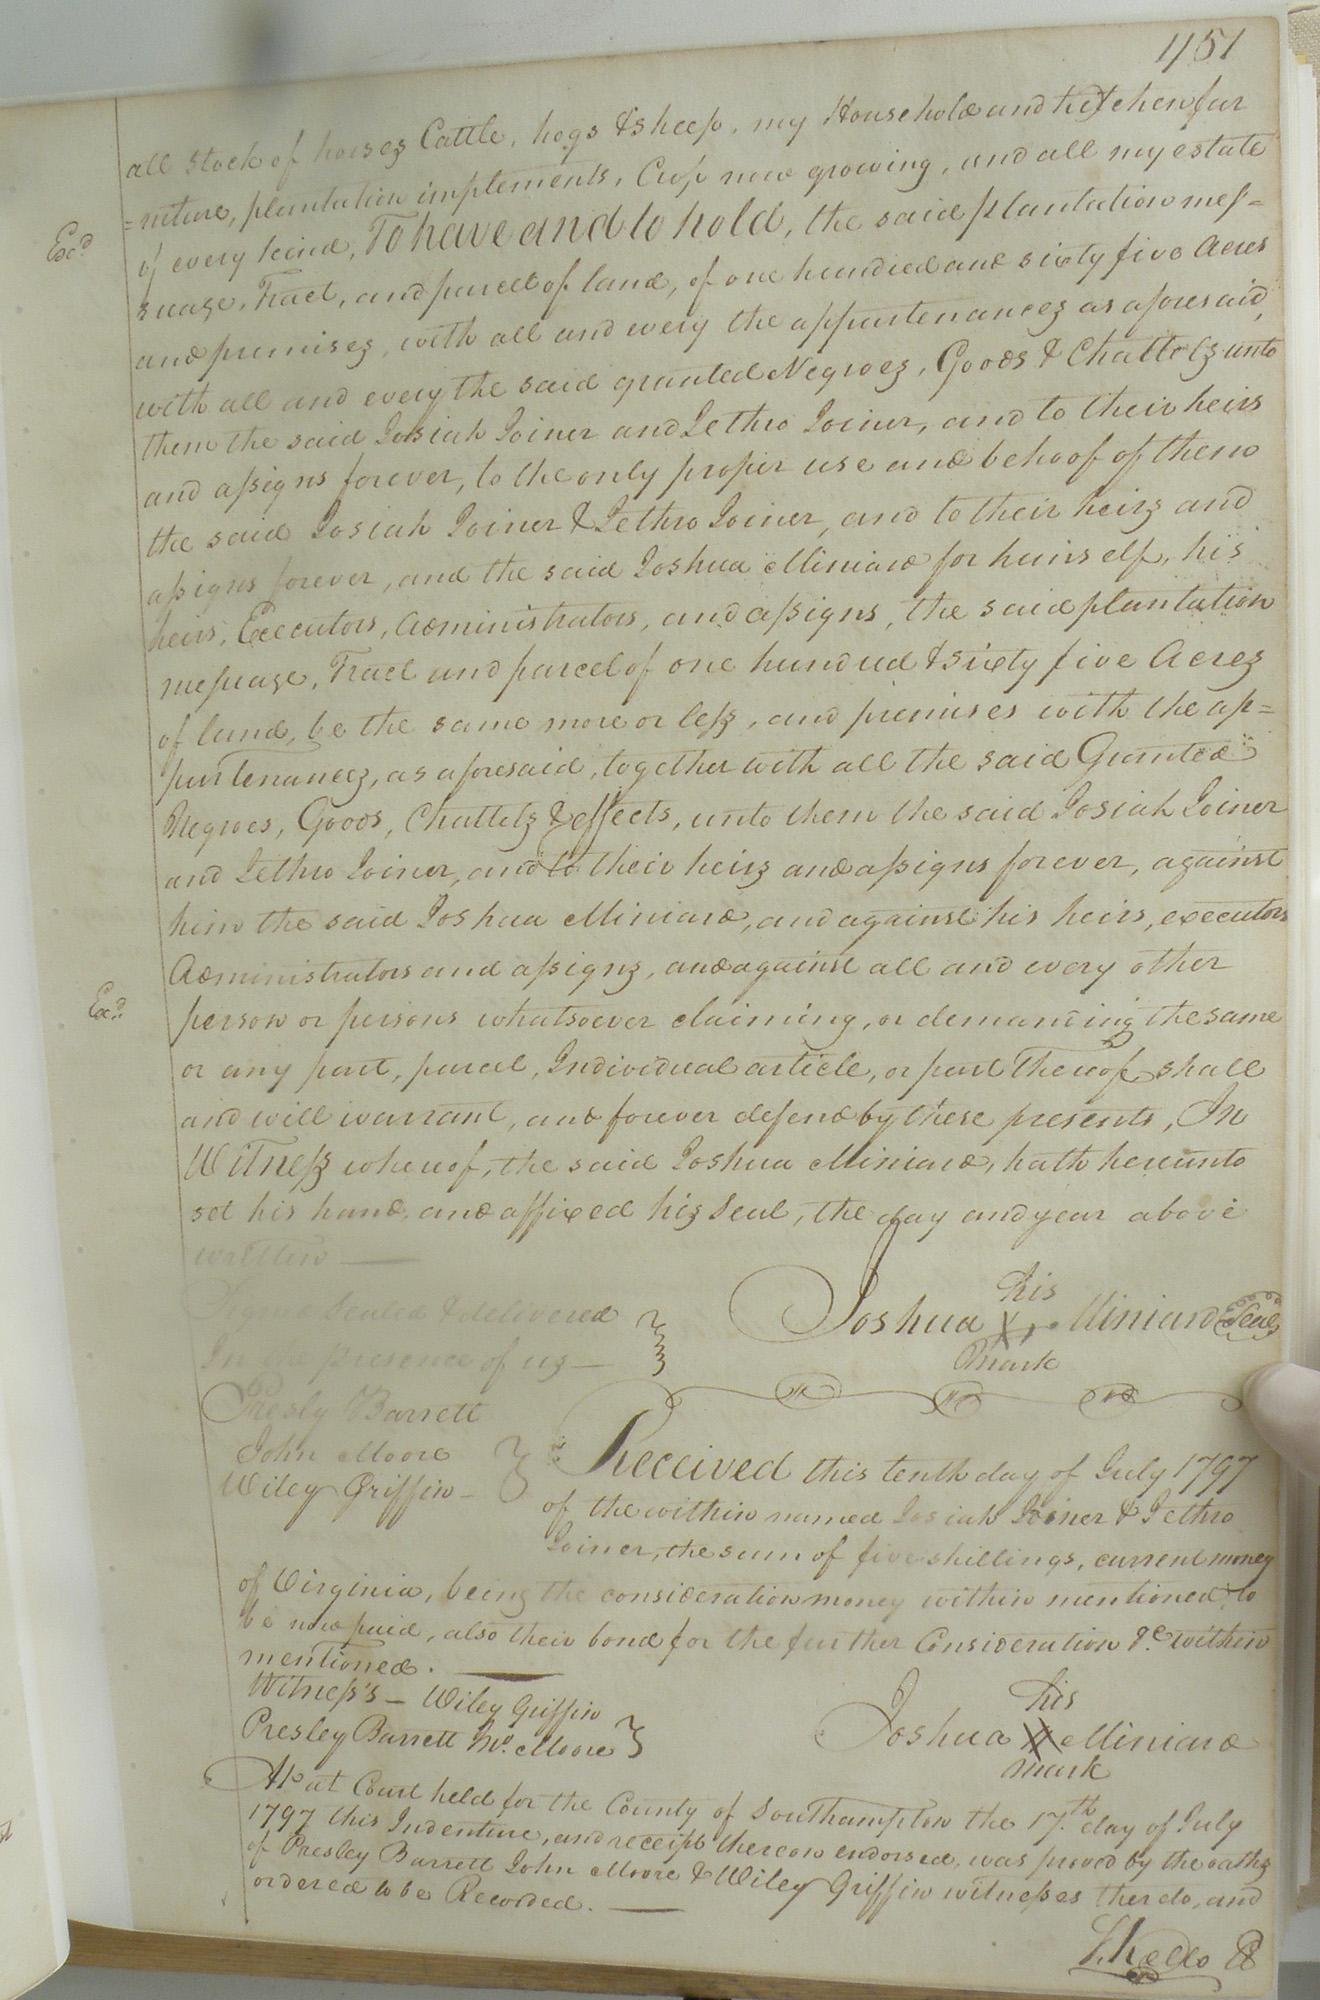 451
all stock of horses Cattle, hogs & sheep, my Household and kitchen fur
=niture, plantation implements, Crop now growing, and all my estate
Exd.
of every kind, To have and to hold, the said plantation mes-
suage, Tract, and parcel of land, of one hundred and sixty five Acres
and premises, with all and every the appurtenances as aforesaid,
with all and every the said granted Negroes, Goods & Chattels unto
them the said Josiah Joiner and Jethro Joiner, and to their heirs
and assigns forever, to the only proper use and behoof of them
the said Josiah Joiner & Jethro Joiner, and to their heirs and
assigns forever, and the said Joshua Miniard for himself, his
heirs, Executors, Administrators, and assigns, the said plantation
messuage, Tract and parcel of one hundred & sixty five Acres
of land, be the same more or less, and premises with the ap=
purtenances, as aforesaid, together with all the said Granted
Negroes, Goods, Chattels & effects, unto them the said Josiah Joiner
and Jethro Joiner, and to their heirs and assigns forever, against
him the said Joshua Miniard, and against his heirs, executors
Administrators and assigns, and against all and every other
Exd.
person or persons whatsoever claiming, or demanding the same
or any part, parcel, Individual article, or part Thereof shall
and will warrant, and forever defend by these presents, In
Witness whereof, the said Joshua Miniard, hath hereunto
set his hand, and affixed his Seal, the day and year above
written —
Signed Sealed & delivered
In the presence of us —
his
Joshua X Miniard Seal
mark
Presly Barrett
John Moore
Wiley Griffin —
Received this tenth day of July 1797
of the within named Josiah Joiner & Jethro
Joiner, the sum of five shillings, current money
of Virginia, being the consideration money within mentioned to
be now paid, also their bond for the further Consideration &c within
mentioned. —
Witness's — Wiley Griffin
Presley Barrett Jno. Moore
his
Joshua X Miniard
mark
At at Court held for the County of Southampton the 17.th day of July
1797 this Indenture, and receipt thereon endorsed, was proved by the oaths
of Presley Barrett John Moore & Wiley Griffin witnesses thereto, and
ordered to be Recorded. —